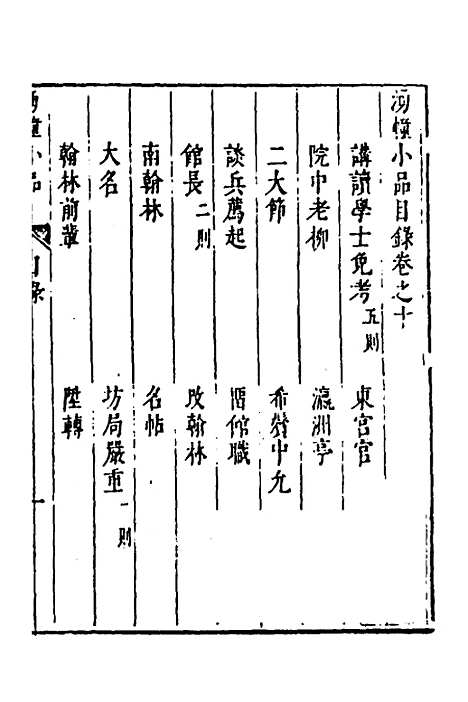 湧幢小品目錄卷之十
講讀學士免考五則　東宮官
院中老柳　瀛洲亭
二大節　希發中允
談兵薦起　留館職
館長二則　改翰林
南翰林　名帖
大名　坊局嚴重一則
翰林前輩　陞轉
湧幢小品　目錄　一